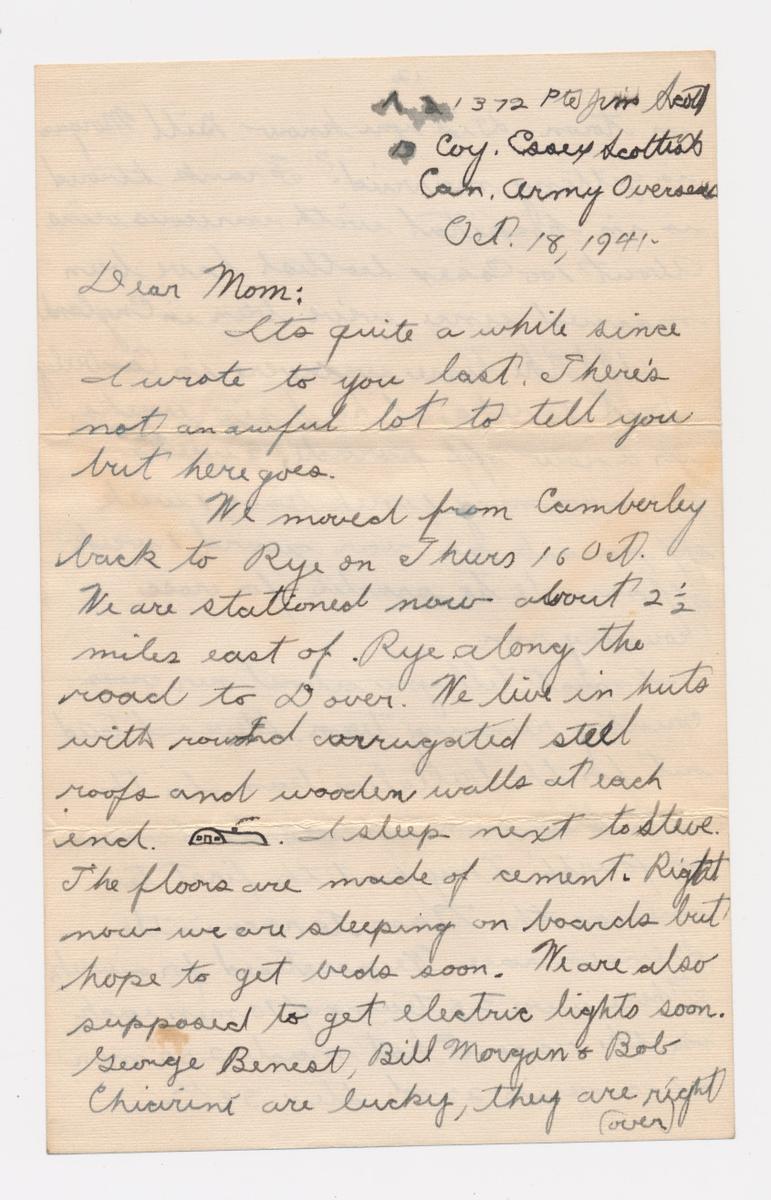 A 21372 Pte Jim Scott
D Coy. Essex Scottish
Can. Army Overseas
Oct. 18, 1941.
Dear Mom:
Its quite a while since
I wrote to you last. There's
not an awful lot to tell you
but here goes.
We moved from Camberley
back to Rye on Thurs 16 Oct.
We are stationed now about 2 1/2
miles east of Rye along the
road to Dover. We live in huts
with round corrugated steel
roofs and wooden walls at each
end. . I sleep next to Steve.
The floors are made of cement. Right
now we are sleeping on boards but
hope to get beds soon. We are also
supposed to get electric lights soon.
George Benest, Bill Morgan & Bob
Chiarini are lucky, they are right
(over)